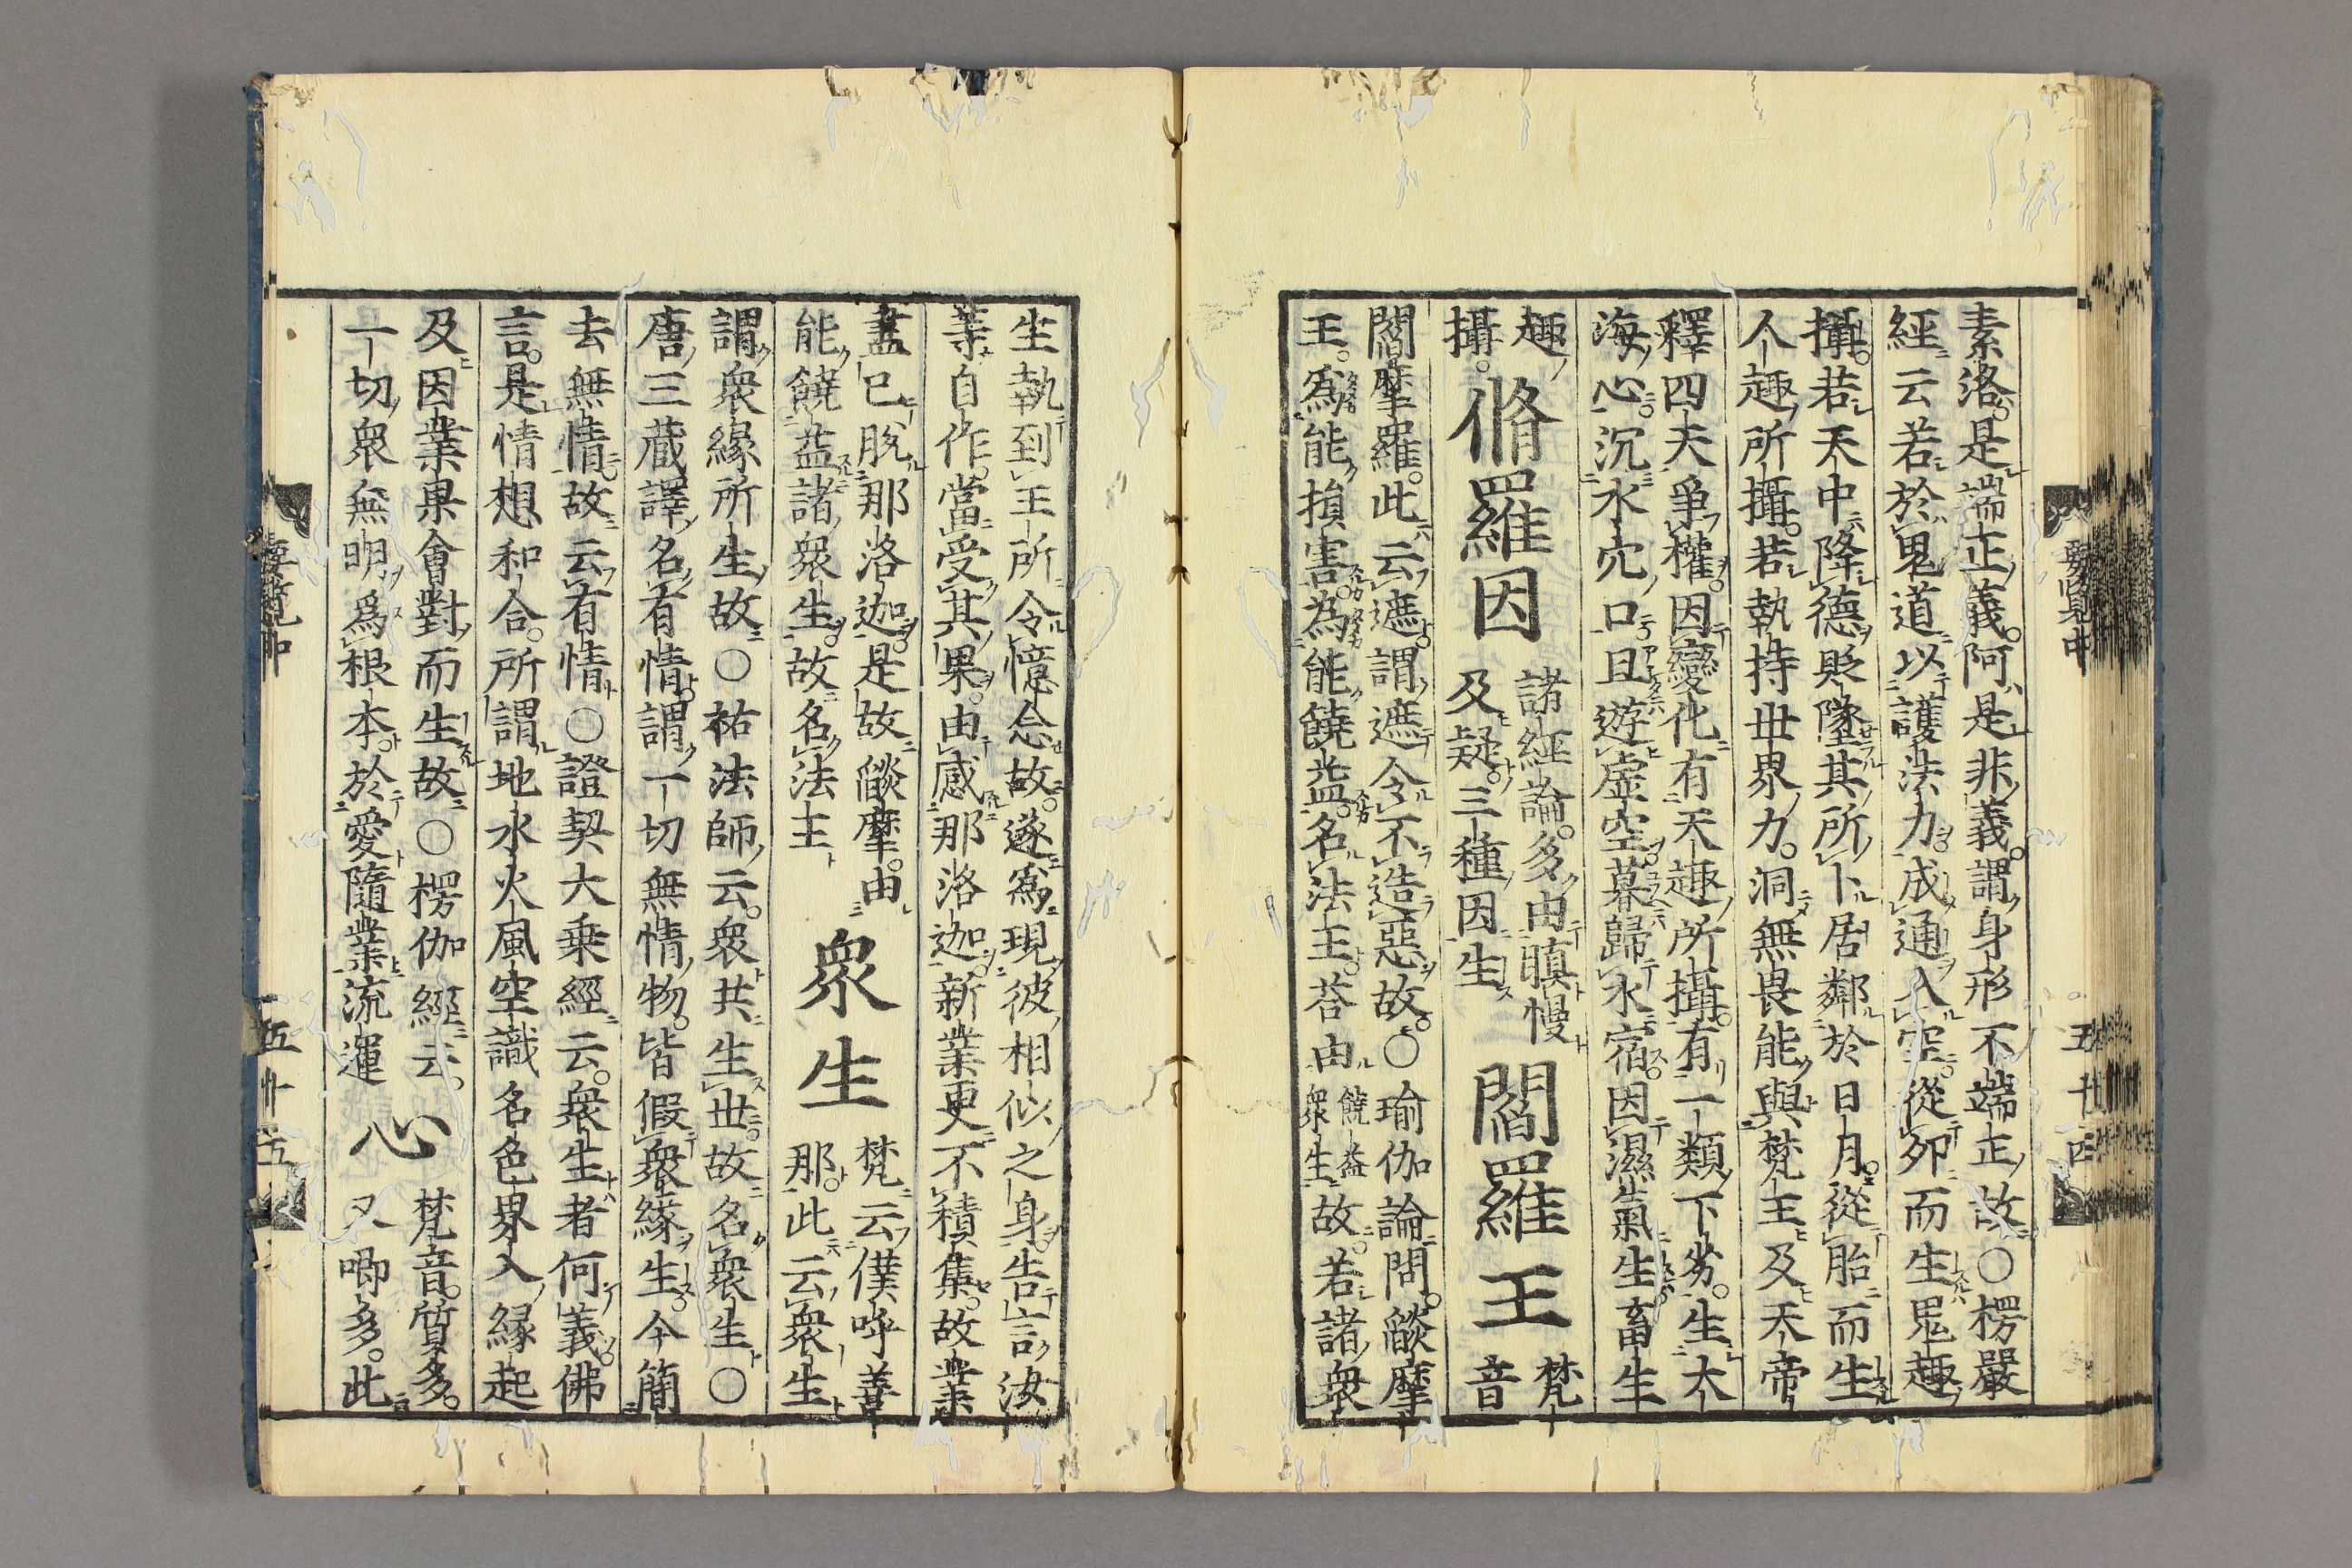 素洛。是端正義。阿是非義。謂身形不端正故○楞嚴
經云若於鬼道以護法力成通入空。從卵而生鬼趣
攝。若天中降德貶墜其所卜居鄰於日月。從胎而生
人趣所攝。若執持世界力。洞無畏能與梵王及天帝
釋四天爭權。因變化有天趣所攝。有一類下劣。生大
海心。沉水穴口。且遊虛空。暮歸水宿。因濕氣生畜生
趣
攝。
脩羅因
諸經論。多由瞋慢
及疑。三種因生
閻羅王
梵
音
閻摩羅。此云遮。謂遮令不造惡故。○瑜伽論問。燄摩
王。爲能損害。為能饒益。名法王。荅由饒益衆生故。若諸衆
要覽中
五十四
生執到王所令憶念故。遂爲現彼相似之身。告言汝
等自作。當受其果。由感那洛迦。新業更不積集。故業
盡已脫那洛迦。是故燄摩。由
能饒益諸衆生。故名法王
衆生
梵云僕呼善
那。此云衆生
謂衆緣所生故○祐法師云。衆共生世。故名衆生○
唐三藏譯名有情。謂一切無情物。皆假衆緣生。今簡
去無情。故云有情○證契大乗經云。衆生者何義。佛
言。是情想和合。所謂地水火風空識名色界入緣起
及因業果會對而生故○楞伽經云。
一切衆無明爲根本。於愛隨業流運
心
梵音。質多。
又唧多。此
要覽中
五十五